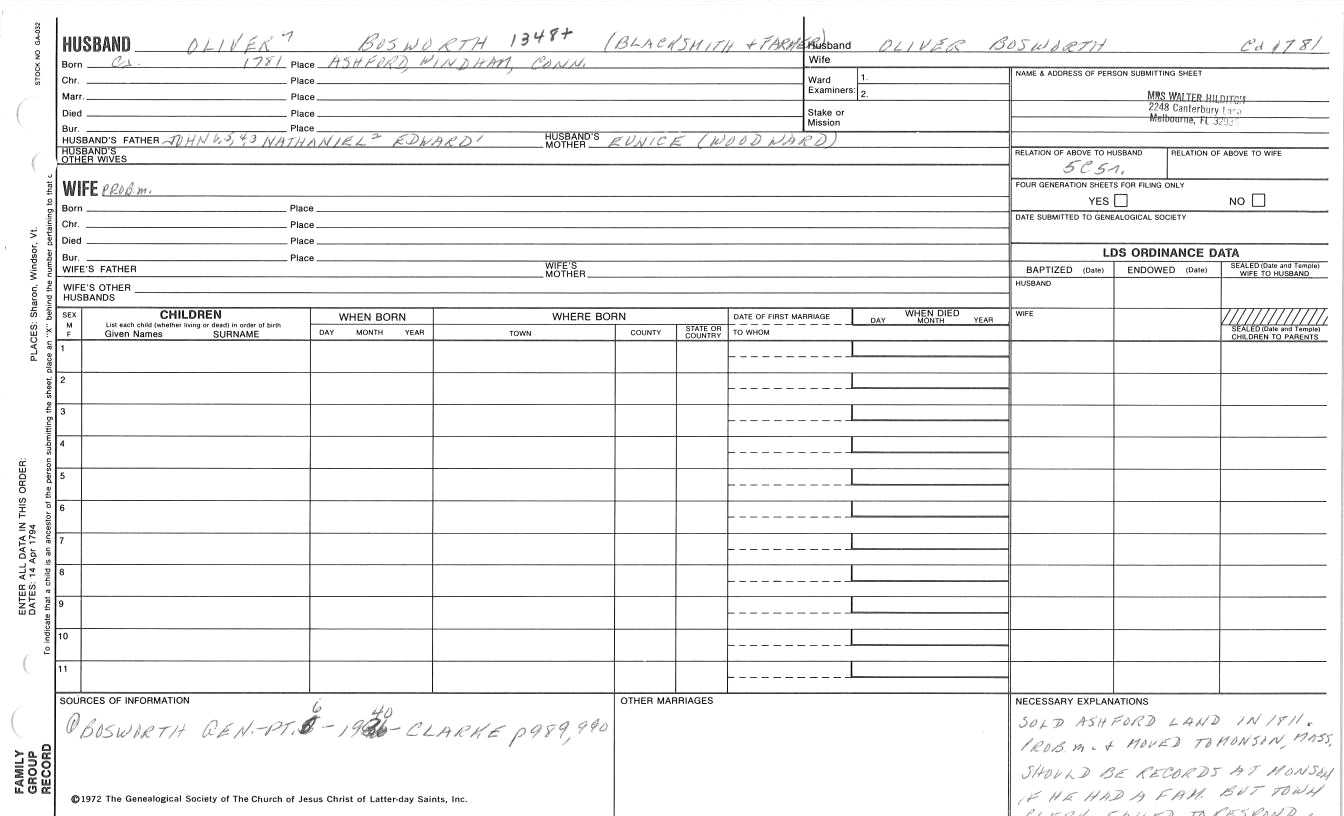 STOCK NO. GA-032
HUSBAND OLIVER 7 BOSWORTH 1348+ (BLACKSMITH + FARMER)
Born Ca. 1781 Place ASHFORD, WINDHAM, CONN.
Chr. Place
Marr. Place
Died Place
Bur. Place
HUSBAND'S FATHER JOHN 6,5,4,3 NATHANIEL 2 EDWARD 1 HUSBAND'S MOTHER EUNICE (WOODWARD)
HUSBAND'S OTHER WIVES
Husband OLIVER BOSWORTH Ca 1781
Wife
Ward Examiners: 1.
2.
Stake or Mission
NAME & ADDRESS OF PERSON SUBMITTING SHEET
MRS WALTER HILDITCH
2248 Canterbury Lane
Melbourne, FL
RELATION OF ABOVE TO HUSBAND
5C5r.
RELATION OF ABOVE TO WIFE
FOUR GENERATION SHEETS FOR FILING ONLY
YES NO
DATE SUBMITTED TO GENEALOGICAL SOCIETY
WIFE PROB m.
Born Place
Chr. Place
Died Place
Bur. Place
WIFE'S FATHER WIFE'S MOTHER
WIFE'S OTHER HUSBANDS
LDS ORDINANCE DATA
BAPTIZED (Date) ENDOWED (Date) SEALED (Date and Temple) WIFE TO HUSBAND
HUSBAND
WIFE
SEALED (Date and Temple) CHILDREN TO PARENTS
SEX M F
CHILDREN
List each child (whether living or dead) in order of birth
Given Names SURNAME
WHEN BORN
DAY MONTH YEAR
WHERE BORN
TOWN COUNTY STATE OR COUNTRY
DATE OF FIRST MARRIAGE
TO WHOM
WHEN DIED
DAY MONTH YEAR
1
2
3
4
5
6
7
8
9
10
11
SOURCES OF INFORMATION
① BOSWORTH GEN.-PT. 6 - 1940 - CLARKE p989,990
OTHER MARRIAGES
NECESSARY EXPLANATIONS
SOLD ASHFORD LAND IN 1811.
PROB m. + MOVED TO MONSON, MASS.
SHOULD BE RECORDS AT MONSON
IF HE HAD A FAM. BUT TOWN
CLERK FAILED TO RESPOND.
©1972 The Genealogical Society of The Church of Jesus Christ of Latter-day Saints, Inc.
FAMILY GROUP RECORD
ENTER ALL DATA IN THIS ORDER:
DATES: 14 Apr 1794
PLACES: Sharon, Windsor, Vt.
To indicate that a child is an ancestor of the person submitting the sheet, place an "X" behind the number pertaining to that c